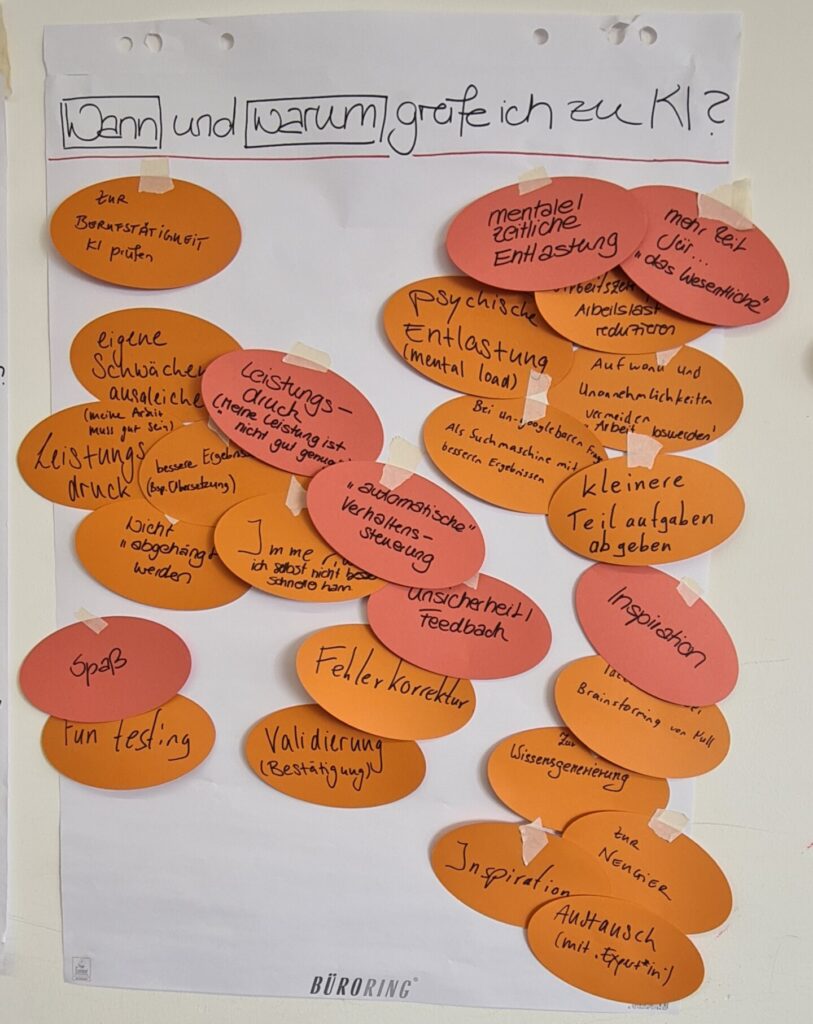 Wann und warum greife ich zu KI?
zur
BERUFSTÄTIGKEIT
KI prüfen
mentale/
zeitliche
Entlastung
mehr Zeit
für...
"das Wesentliche"
psychische
Entlastung
(mental load)
Arbeitslast
reduzieren
Aufwand und
Unannehmlichkeiten
vermeiden
"Arbeit loswerden"
Bei un-googlebaren
Als Suchmaschine mit
besseren Ergebnissen
kleinere
Teilaufgaben
abgeben
eigene
Schwächen
ausgleichen
Leistungs-
druck
(meine Leistung ist
nicht gut genug)
(meine Arbeit
muss gut sein)
Leistungs
druck
bessere Ergebnisse
(Bsp. Übersetzung)
Nicht
"abgehängt"
werden
ich selbst nicht
schneller kann
"automatische"
Verhaltens-
steuerung
Unsicherheit/
Feedback
Fehlerkorrektur
Validierung
(Bestätigung)
Spaß
Fun testing
Inspiration
Brainstorming von Null
Zur
Wissensgenerierung
Inspiration
zur
NEUGIER
Austausch
(mit "Expert*in")
BÜRORING